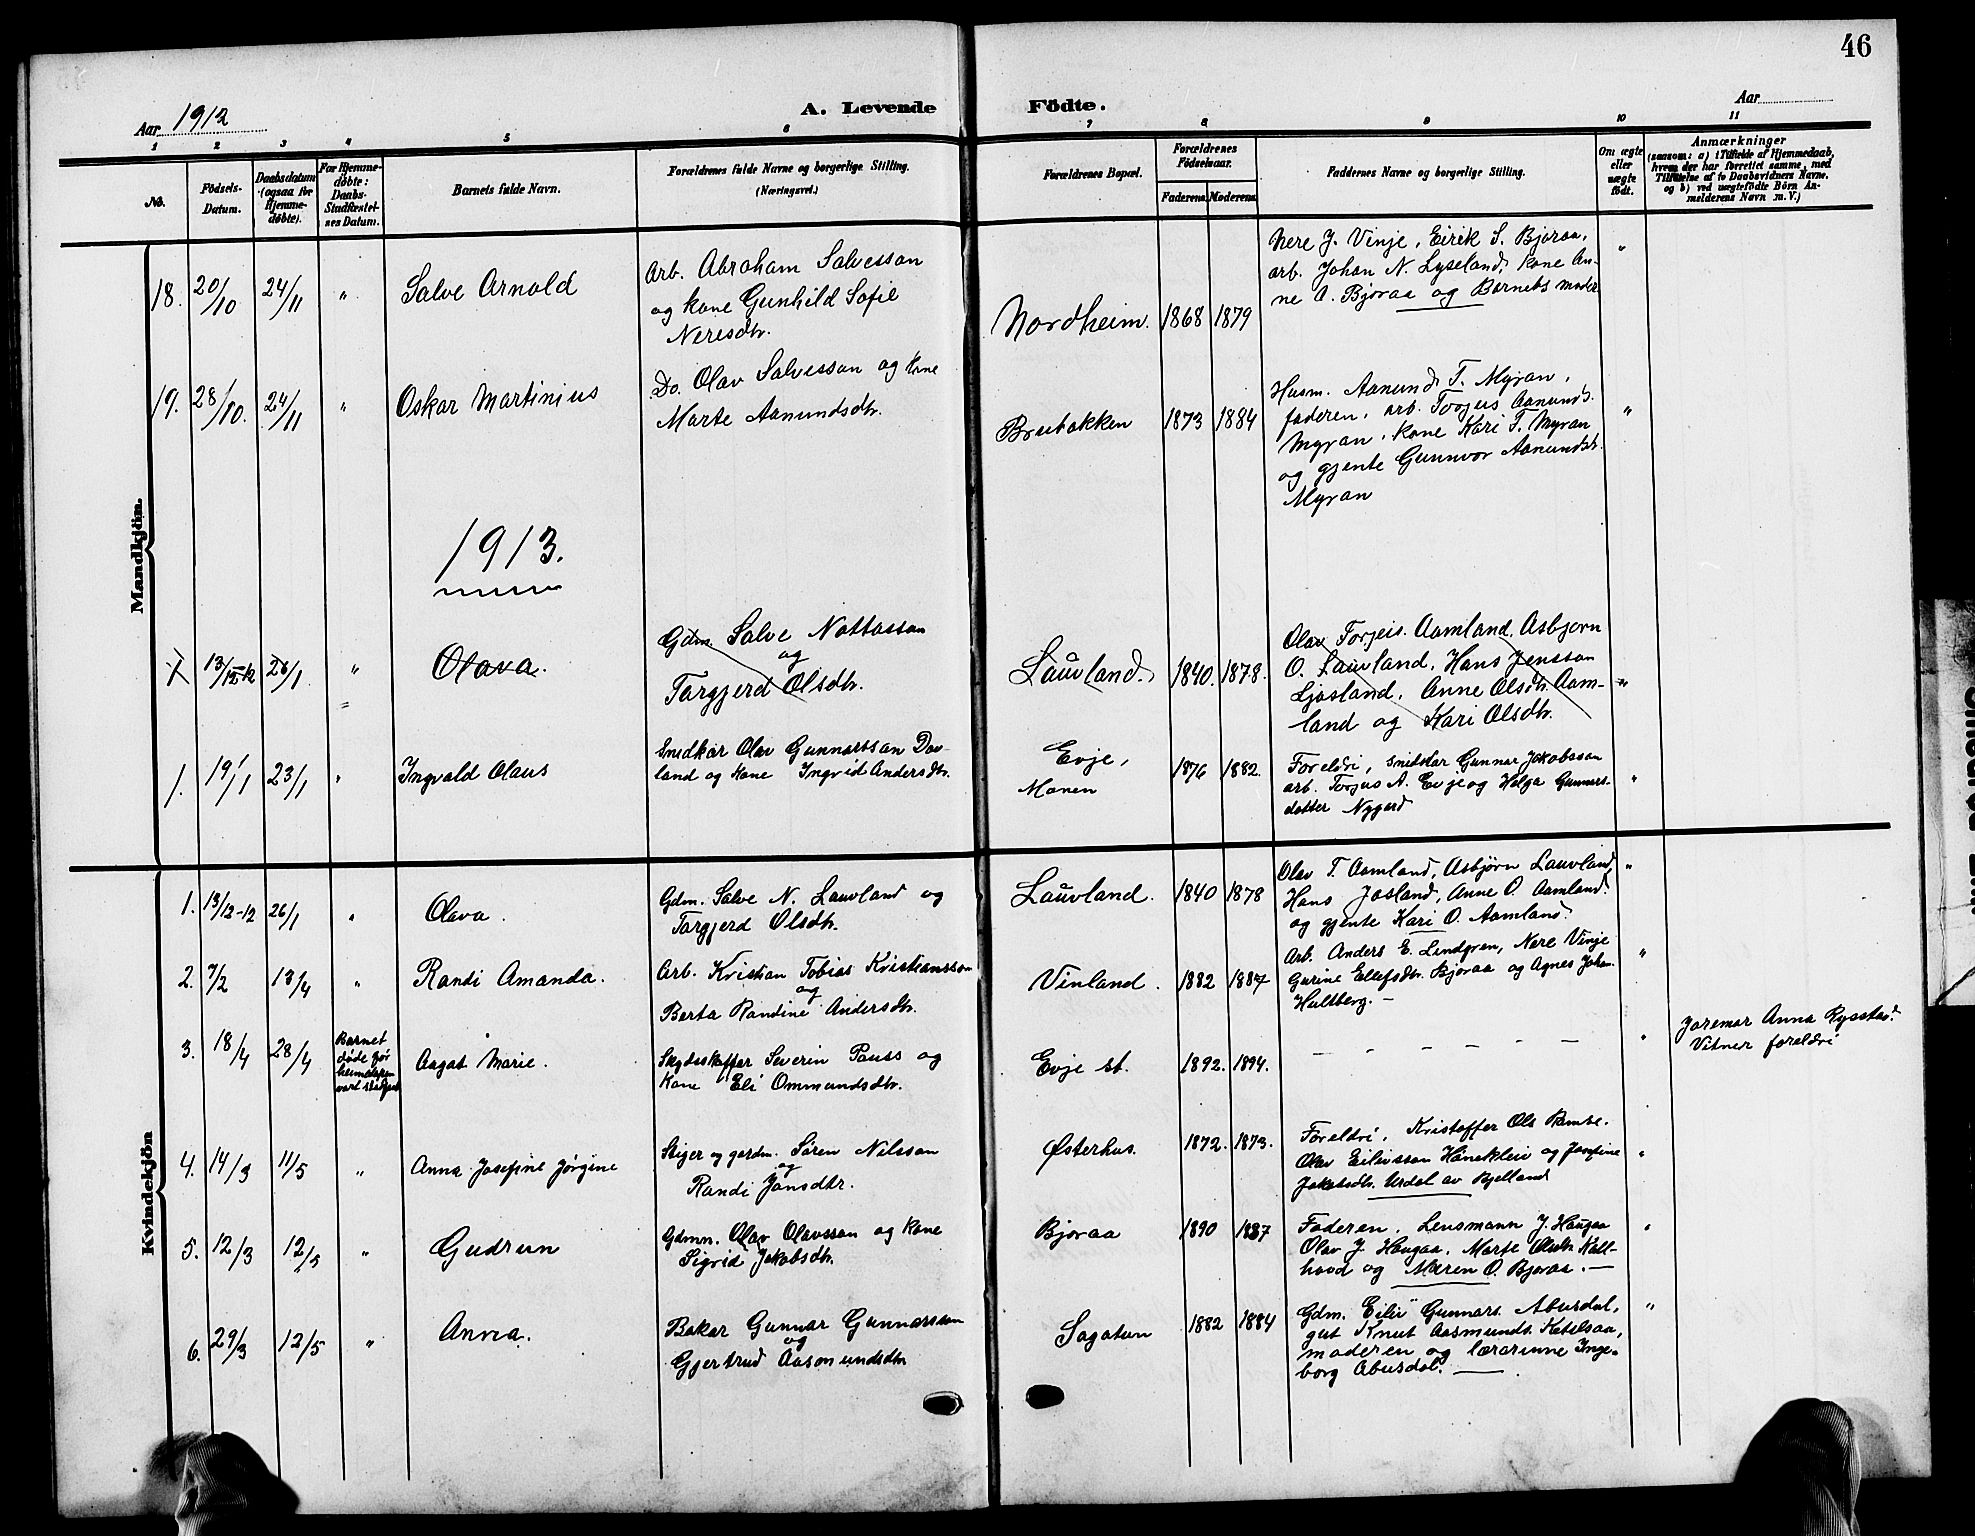 46
Aar 1912
A. Levende Födte.
Aar
1 2 3 4 5 6 7 8 9 10 11
No.
Födsels-Datum.
Daabsdatum (ogsaa for Hjemmedøbte).
For Hjemmedøbte: Daabs Stadfæstelses Datum.
Barnets fulde Navn.
Forældrenes fulde Navne og borgerlige Stilling. (Næringsvei.)
Forældrenes Bopæl.
Forældrenes Födselsaar.
Faderens Moderens
Faddernes Navne og borgerlige Stilling.
Om ægte eller uægte født.
Anmærkninger
(saasom: a) i Tilfælde af Hjemmedaab, hvem der har forrettet samme, med Tilføielse af to Daabsvidners Navne. og b) ved uægtefödte Börn Anmelderens Navn m. V.)
Mandkjön.
18. 20/10 24/11 " Salve Arnold
Arb. Abraham Salvesson
og kone Gunhild Sofie
Neresdtr.
Nordheim. 1868 1879
Nere J. Vinje, Eirik S. Bjoraa,
arb. Johan N. Lyseland, kone An-
ne A. Bjoraa og Barnets moder
"
19. 28/10. 24/11 " Oskar Martinius
Do. Olav Salvesson og kone
Marte Aanundsdtr.
Brubakken 1873 1884
Husm. Aanund T. Myran,
faderen, arb. Torjus Aanunds.
Myran, kone Kari T. Myran
og gjente Gunnvor Aanundsdtr.
Myran
"
1913.
1 13/12-12 26/1. " Olava.
Gdm. Salve Nottosson
og
Targjerd Olsdtr.
Lauvland. 1840. 1878.
Olav Torjeis. Aamland, Asbjorn
O. Lauvland, Hans Jensson
Ljosland, Anne Olsdtr. Aam-
land og Kari Olsdtr.
"
1. 19/1 23/1 " Ingvald Olaus
Snedkar Olav Gunnarsson Dov-
land og kone Ingrid Andersdtr.
Evje,
Monen
1876 1882.
Foreldri, snidkar Gunnar Jakobsson
arb. Torjus A. Evje og Helga Gunnars-
dotter Nygerd
"
Kvindekjön
1. 13/12-12 26/1 " Olava.
Gdm. Salve N. Lauvland og
Targjerd Olsdtr.
Lauvland. 1840 1878
Olav T. Aamland, Asbjørn Lauvland,
Hans Josland, Anne O. Aamland.
og gjente Kari O. Aamland.
"
2. 7/2 13/4 " Randi Amanda.
Arb. Kristian Tobias Kristiansson
og
Berta Randine Andersdtr.
Vinland. 1882 1887
Arb. Anders E. Lindgren, Nere Vinje
Gurine Ellefsdtr. Bjoraa og Agnes Johan.
Hultberg. —
"
3. 18/4 28/4
Barnet
døde
Aagot Marie.
Skydsskaffer Severin Pauss og
Kone Eli Ommundsdtr.
Evje st. 1892. 1894.
— — — — — —
"
Joremor Anna Rysstad.
Vitner foreldri
4. 14/3 11/5 " Anna Josefine Jørgine
Stiger og gardm. Søren Nilsson
og
Randi Jonsdtr.
Østerhus. 1872. 1873.
Foreldri, Kristoffer Ols
Olav Eilivsson og Josefine
Jakobsdtr. Urdal av Bjelland
"
5. 12/3 12/5 " Gudrun
Gdmn. Olav Olavsson og kone
Sigrid Jakobsdtr.
Bjoraa 1890 1887
Faderen, Lensmann J. Haugaa
Olav J. Haugaa, Marte Olsdtr. Kall-
hovd og Maren O. Bjoraa. —
"
6. 29/3 12/5 " Anna.
Bakar Gunnar Gunnarsson
og
Gjertrud Aasmundsdtr
Sagatun 1882 1884
Gdm. Eiliv Gunnars. Abusdal,
gut Knut Aasmunds. Ketelsaa,
moderen og lærarinne Inge-
borg Abusdal. —
"